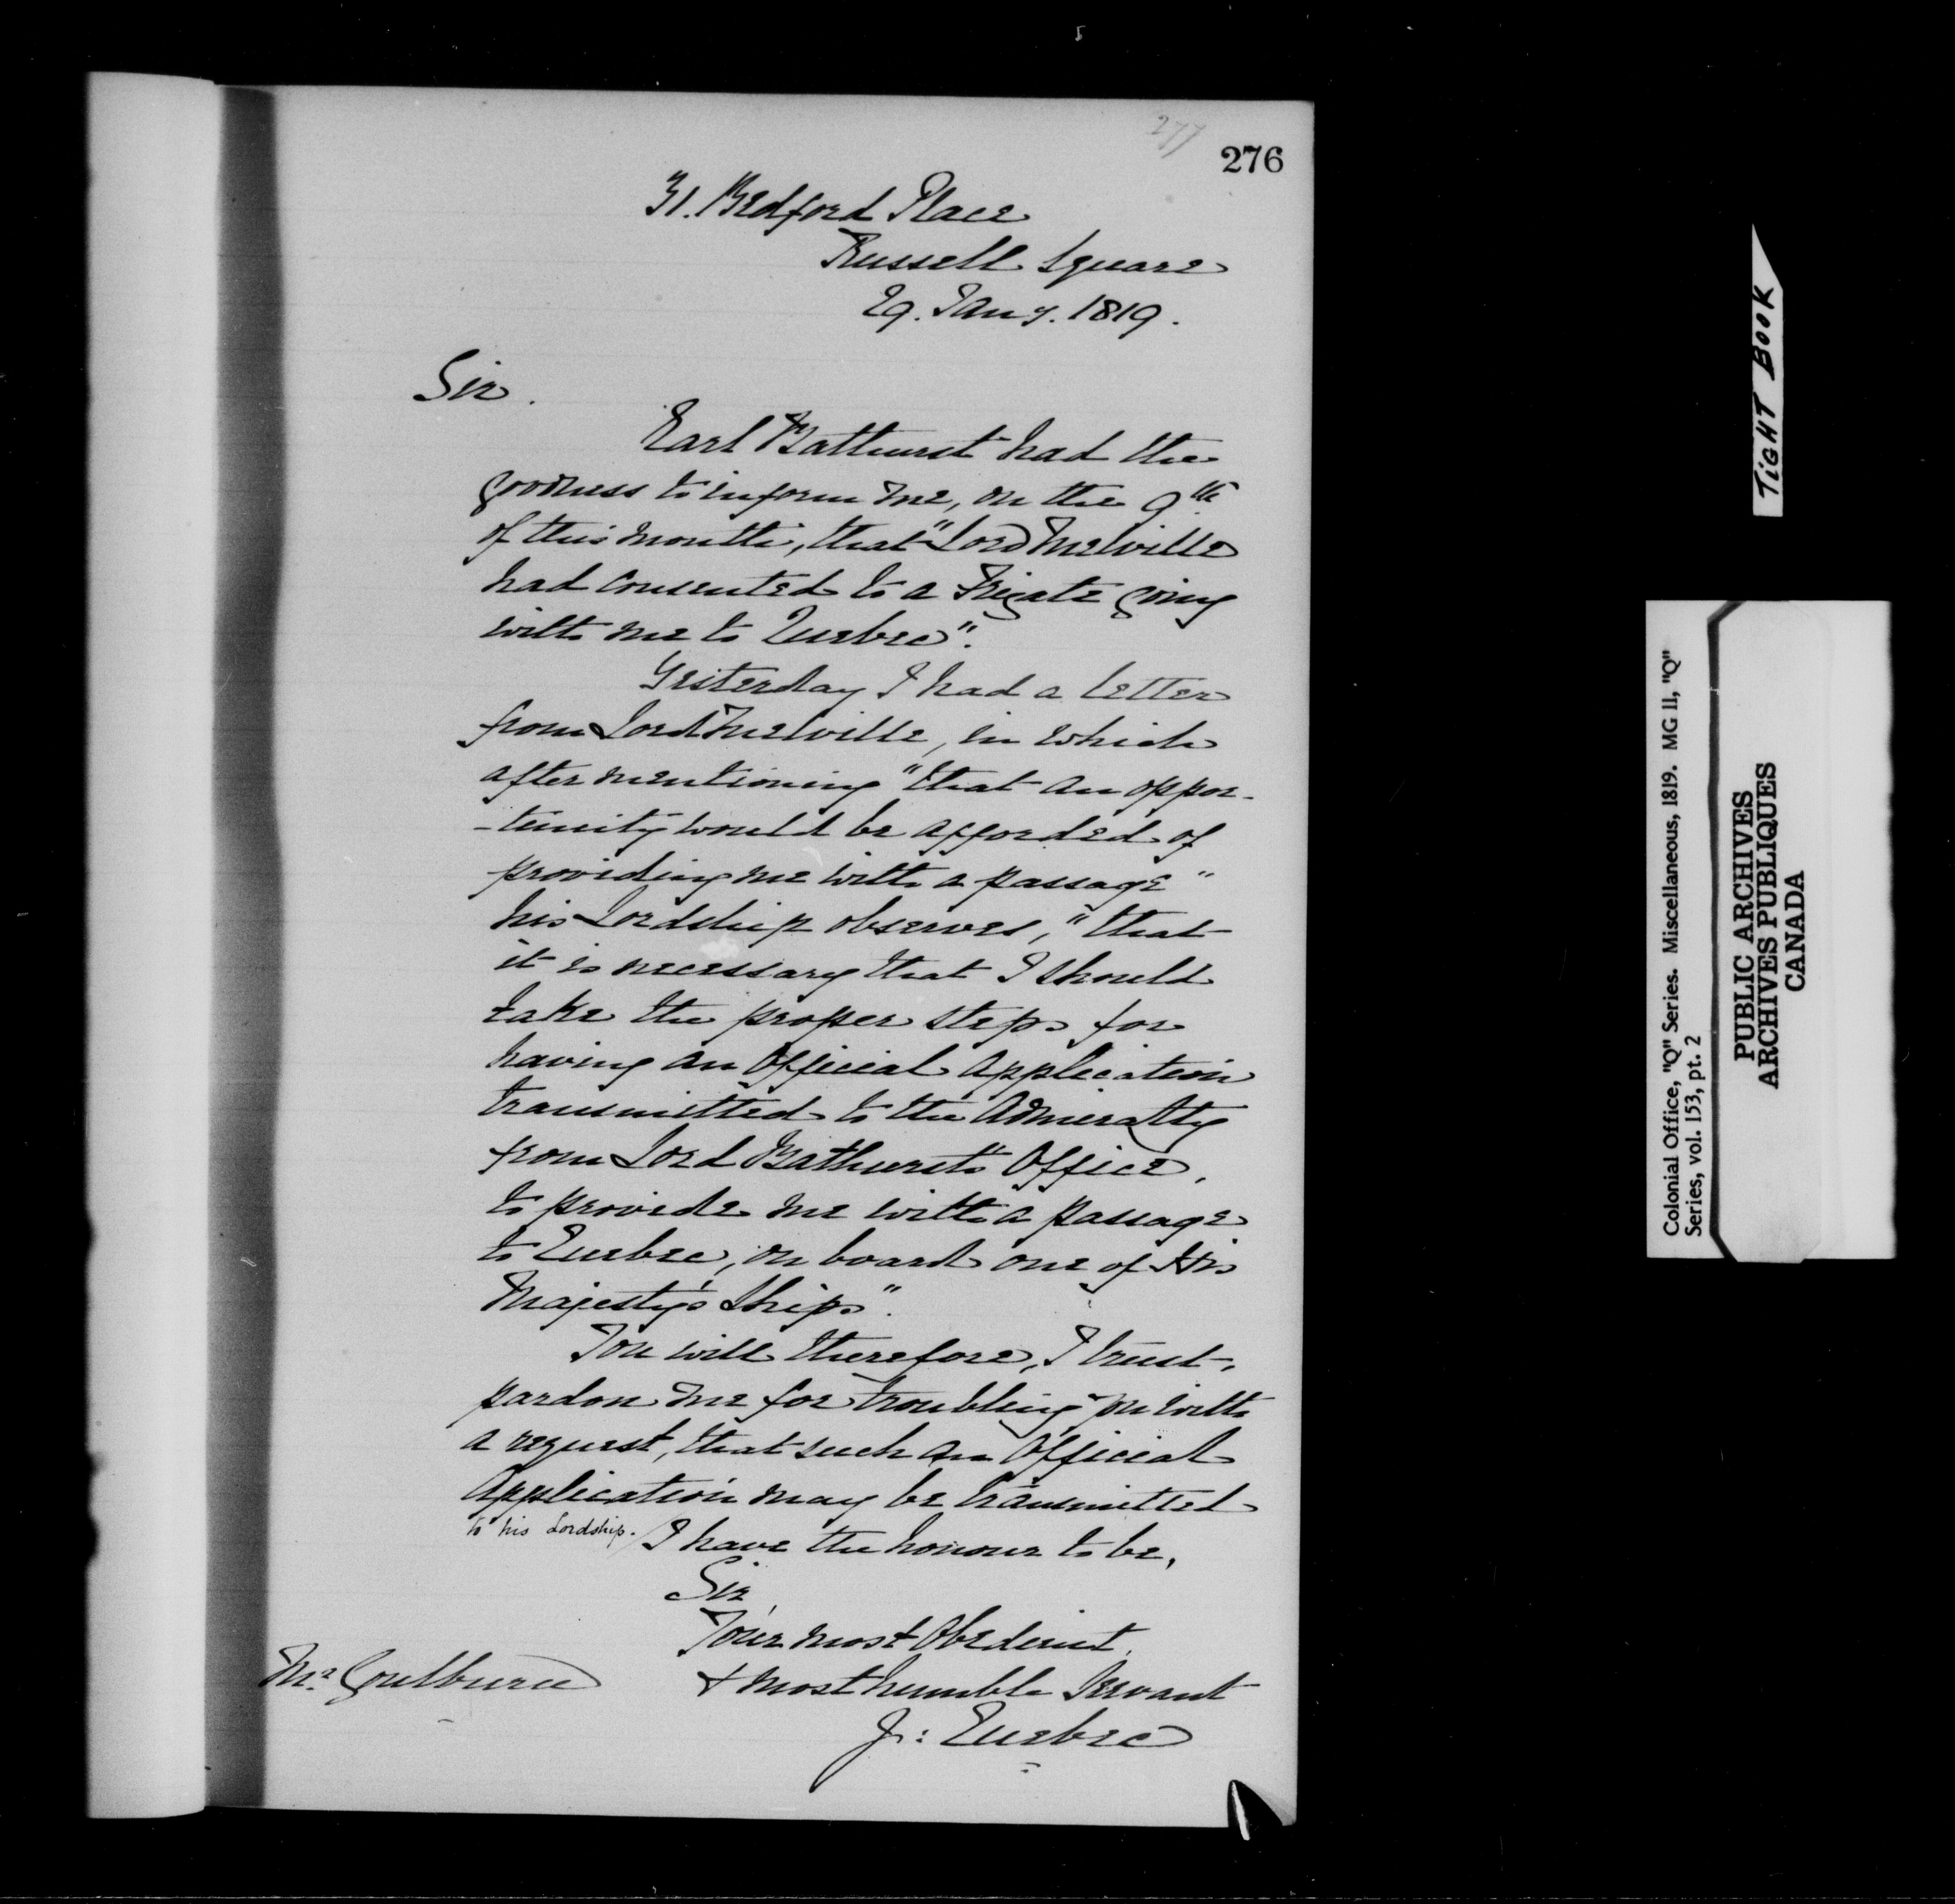 277
276
31. Bedford Place
Russell Square
29. Jany. 1819.
Sir.
Earl Bathurst had the
goodness to inform me, on the 9th
of this month, that "Lord Melville
had consented to a Frigate going
with me to Quebec".
Yesterday I had a letter
from Lord Melville, in which
after mentioning "that an oppor-
-tunity would be afforded of
providing me with a passage"
his Lordship observes, "that
it is necessary that I should
take the proper steps for
having an Official Application
transmitted to the Admiralty
from Lord Bathurst's Office,
to provide me with a passage
to Quebec, on board one of His
Majesty's Ships".
You will therefore, I trust,
pardon me for troubling you with
a request, that such an Official
Application may be transmitted
to his Lordship. / I have the honour to be,
Sir,
Your most Obedient,
& most humble Servant
J: Quebec
Mr. Goulburn
TIGHT BOOK
Colonial Office, "Q" Series. Miscellaneous, 1819. MG 11, "Q"
Series, vol. 153, pt. 2
PUBLIC ARCHIVES
ARCHIVES PUBLIQUES
CANADA